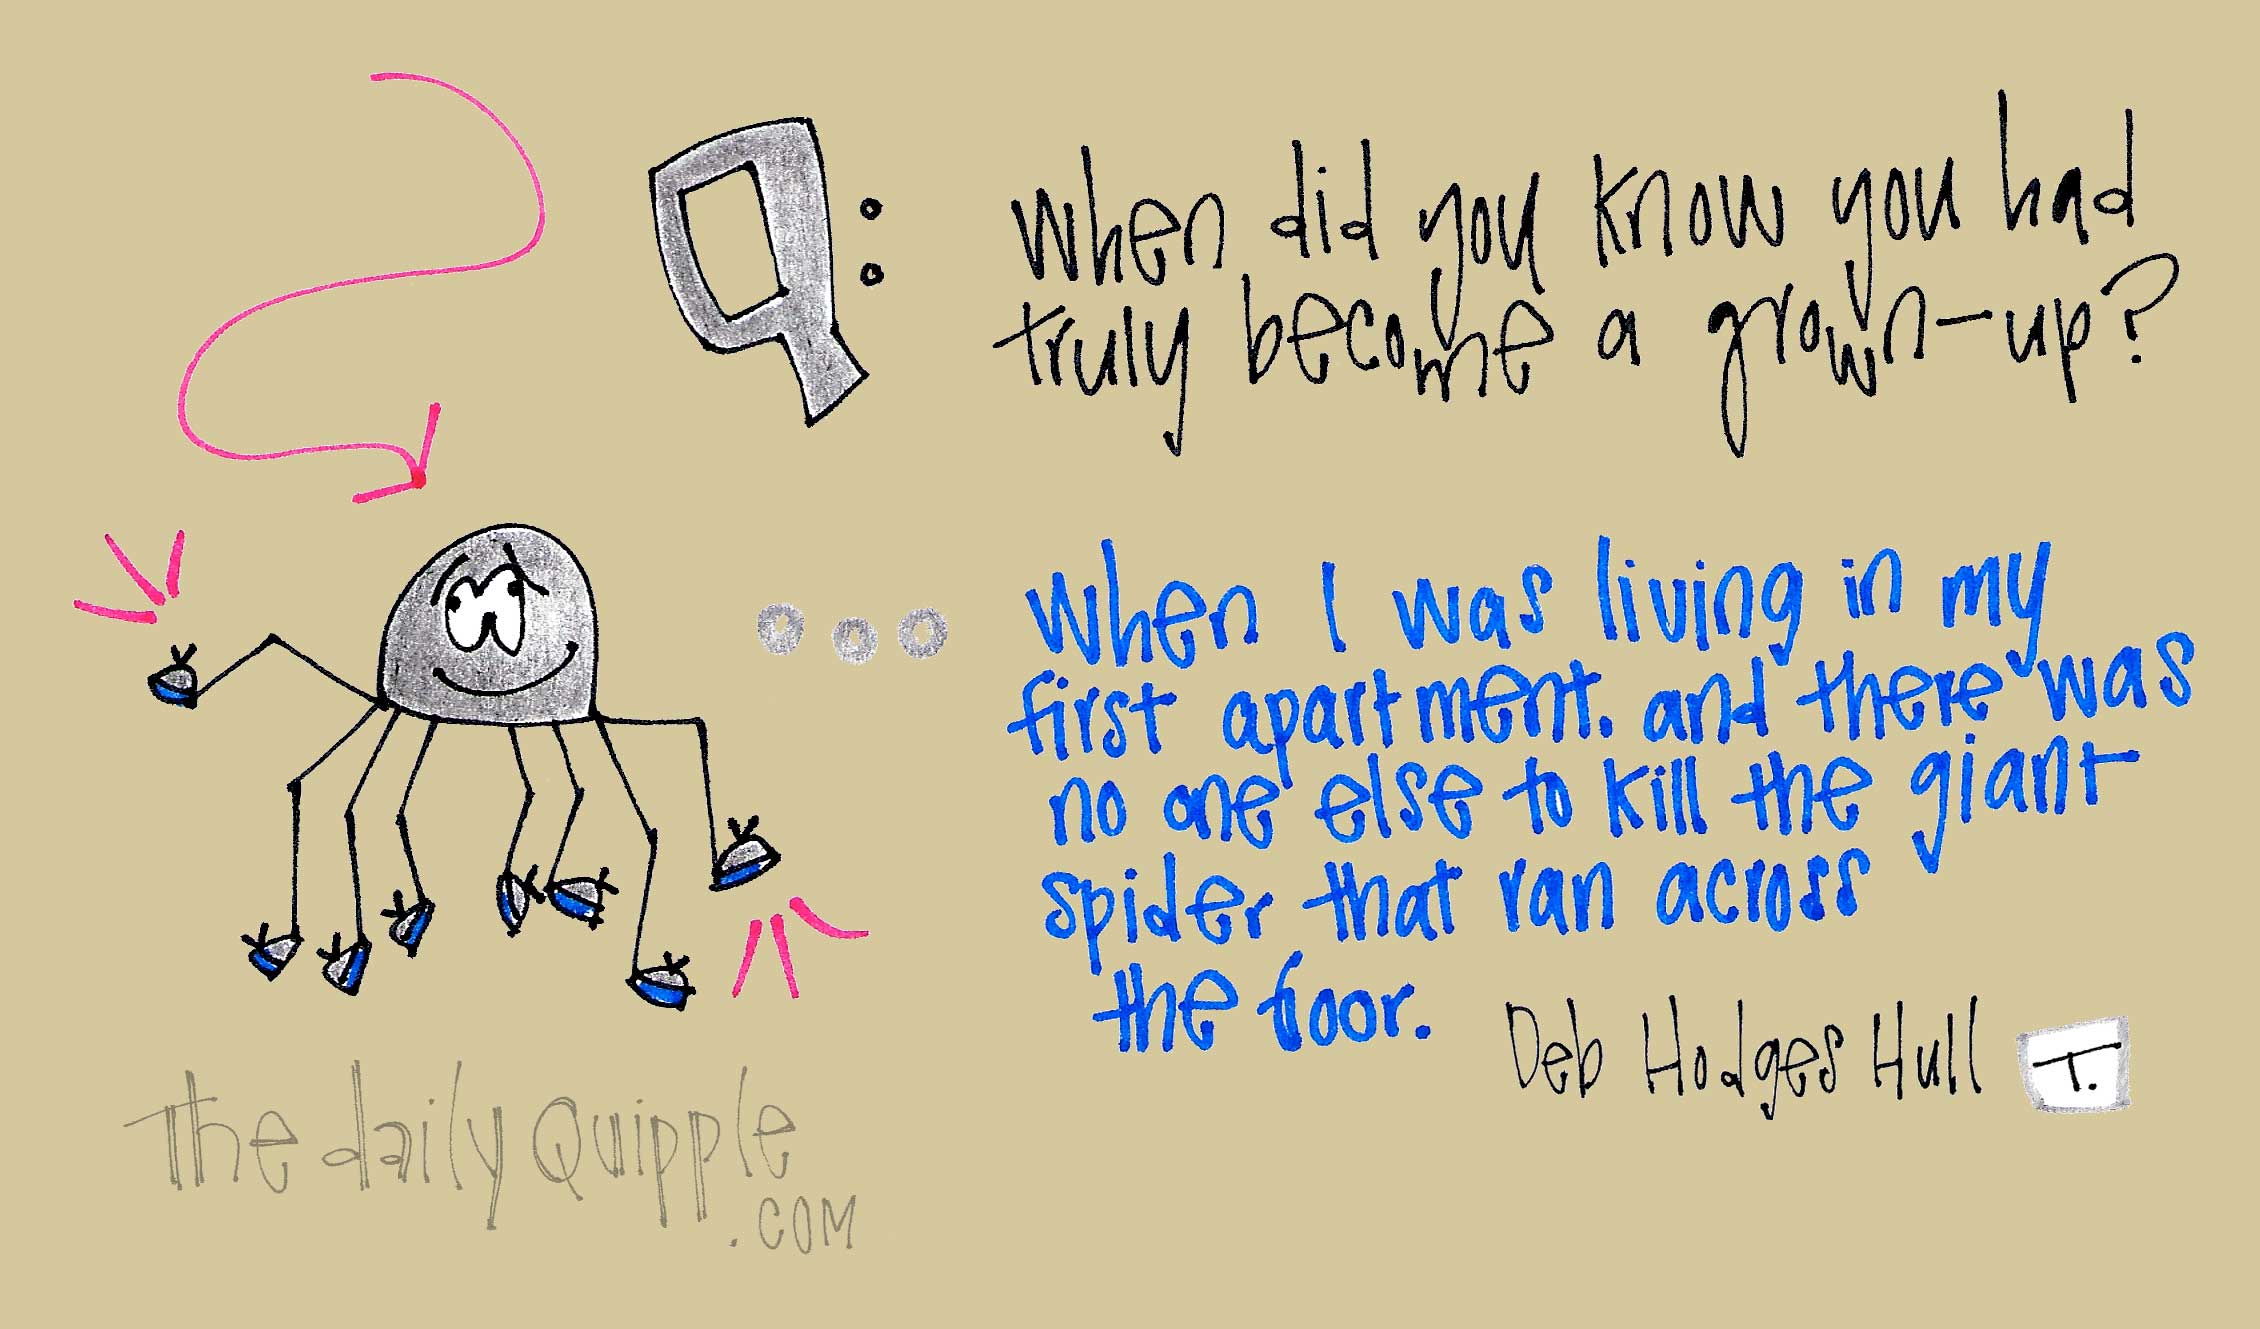 Q:
When did you know you had
truly become a grown-up?
When I was living in my
first apartment. and there was
no one else to kill the giant
spider that ran across
the floor.
Deb Hodges Hull T.
The daily Quipple
.com